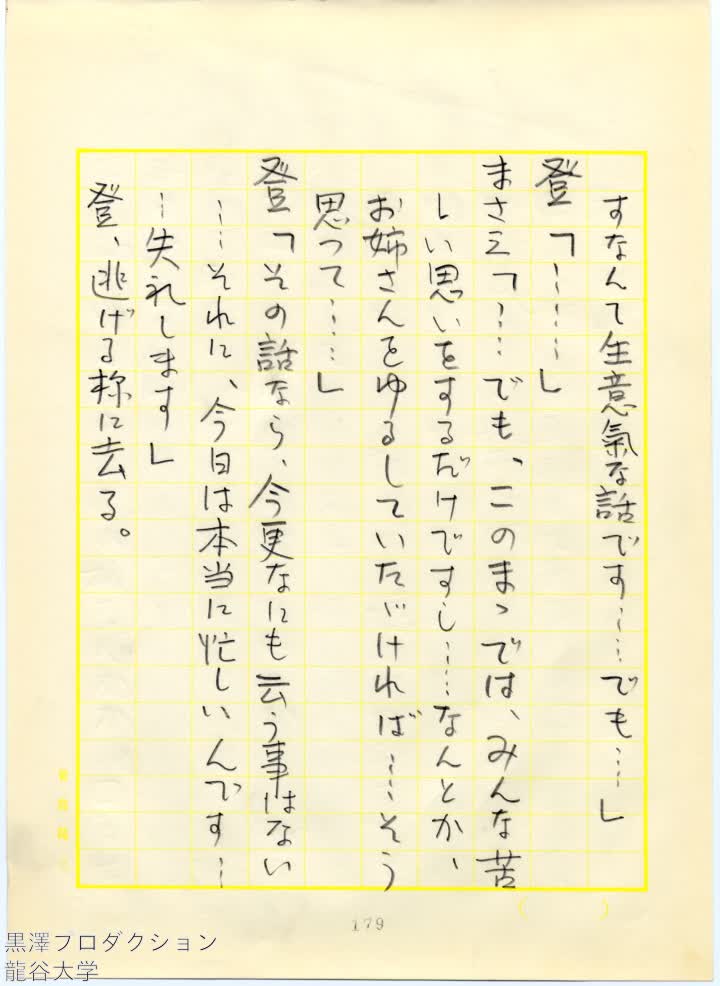 すなんて生意氣な話です……でも…」
登「…………」
まさえ「……でも、このまゝでは、みんな苦
しい思いをするだけですし……なんとか、
お姉さんをゆるしていたゞければ……そう
思って……」
登「その話なら、今更なにも云う事はない
……それに、今日は本当に忙しいんです…
…失礼します」
登、逃げる様に去る。
179
黒澤プロダクション
龍谷大学